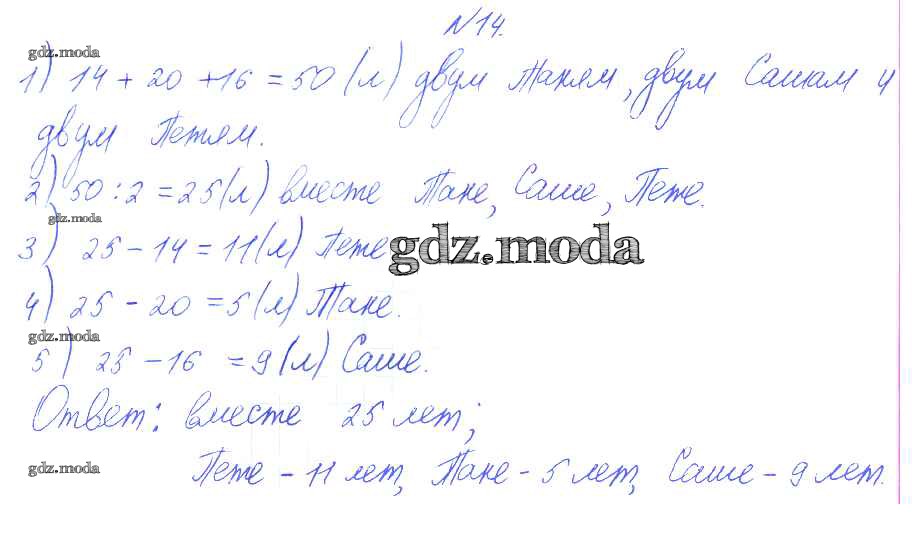 №14.
gdz.moda
1) 14 + 20 + 16 = 50 (л) двум Таням, двум Сашам и
двум Петям.
2) 50 : 2 = 25 (л) вместе Тане, Саше, Пете.
gdz.moda
3) 25 - 14 = 11 (л) Пете
gdz.moda
4) 25 - 20 = 5 (л) Тане.
gdz.moda
5) 25 - 16 = 9 (л) Саше.
Ответ: вместе 25 лет;
gdz.moda
Пете - 11 лет, Тане - 5 лет, Саше - 9 лет.